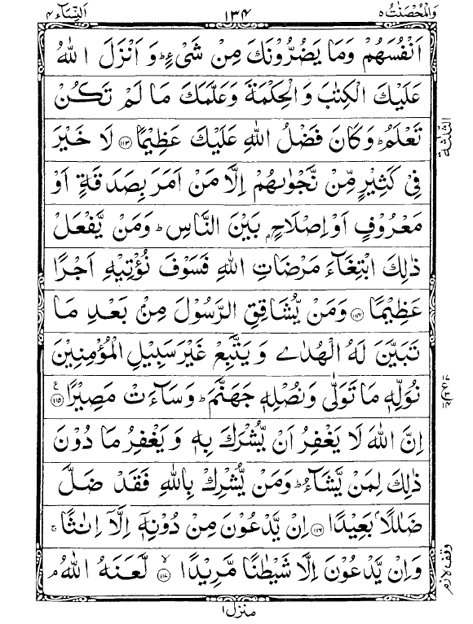 وَالْمُحْصَنٰتُ ۵ ۱۳۴ اَلنِّسَآء ۴
اَنْفُسَهُمْ وَمَا يَضُرُّوْنَكَ مِنْ شَىْءٍ ؕ وَ اَنْزَلَ اللّٰهُ
عَلَيْكَ الْكِتٰبَ وَالْحِكْمَةَ وَعَلَّمَكَ مَا لَمْ تَكُنْ
تَعْلَمُ ؕ وَكَانَ فَضْلُ اللّٰهِ عَلَيْكَ عَظِيْمًا ﴿۱۱۳﴾ لَا خَيْرَ
فِىْ كَثِيْرٍ مِّنْ نَّجْوٰىهُمْ اِلَّا مَنْ اَمَرَ بِصَدَقَةٍ اَوْ
مَعْرُوْفٍ اَوْ اِصْلَاحٍۭ بَيْنَ النَّاسِ ؕ وَمَنْ يَّفْعَلْ
ذٰلِكَ ابْتِغَآءَ مَرْضَاتِ اللّٰهِ فَسَوْفَ نُؤْتِيْهِ اَجْرًا
عَظِيْمًا ﴿۱۱۴﴾ وَمَنْ يُّشَاقِقِ الرَّسُوْلَ مِنْۢ بَعْدِ مَا
تَبَيَّنَ لَهُ الْهُدٰى وَ يَتَّبِعْ غَيْرَ سَبِيْلِ الْمُؤْمِنِيْنَ
نُوَلِّهٖ مَا تَوَلّٰى وَ نُصْلِهٖ جَهَنَّمَ ؕ وَسَآءَتْ مَصِيْرًا ﴿۱۱۵﴾ ع
اِنَّ اللّٰهَ لَا يَغْفِرُ اَنْ يُّشْرَكَ بِهٖ وَ يَغْفِرُ مَا دُوْنَ
ذٰلِكَ لِمَنْ يَّشَآءُ ؕ وَمَنْ يُّشْرِكْ بِاللّٰهِ فَقَدْ ضَلَّ
ضَلٰلًاۢ بَعِيْدًا ﴿۱۱۶﴾ اِنْ يَّدْعُوْنَ مِنْ دُوْنِهٖۤ اِلَّاۤ اِنٰثًا ۚ
وَاِنْ يَّدْعُوْنَ اِلَّا شَيْطٰنًا مَّرِيْدًا ﴿۱۱۷﴾ ۙ لَّعَنَهُ اللّٰهُ ۘ
منزل ۱
الثلثة
وقف لازم